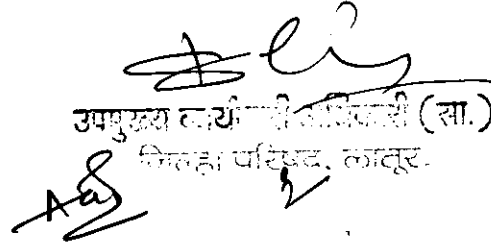 उपमुख्य कार्यकारी अधिकारी (सा.)
जिल्हा परिषद, लातूर.